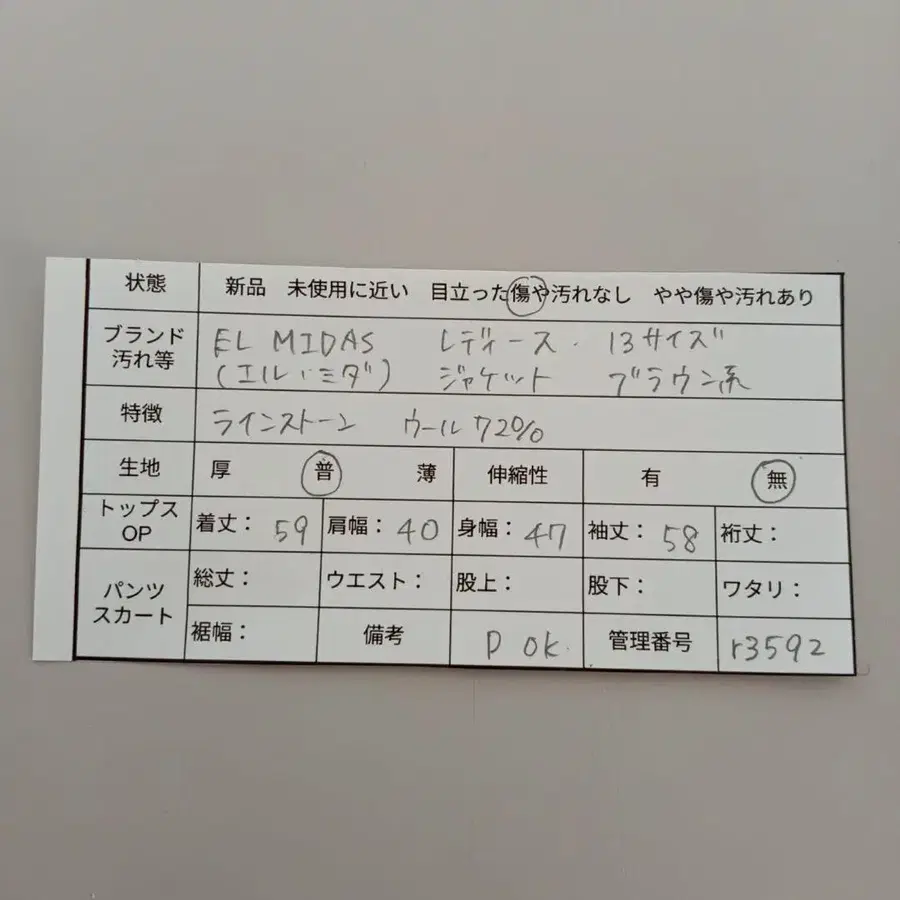 状態 新品 未使用に近い 目立った傷や汚れなし やや傷や汚れあり
ブランド 汚れ等 EL MIDAS レディース・13サイズ
(エル・ミダ) ジャケット ブラウン系
特徴 ラインストーン ウール72%
生地 厚 普 薄 伸縮性 有 無
トップス OP 着丈：59 肩幅：40 身幅：47 袖丈：58 裄丈：
パンツ スカート 総丈： ウエスト： 股上： 股下： ワタリ：
裾幅： 備考 P OK 管理番号 r3592